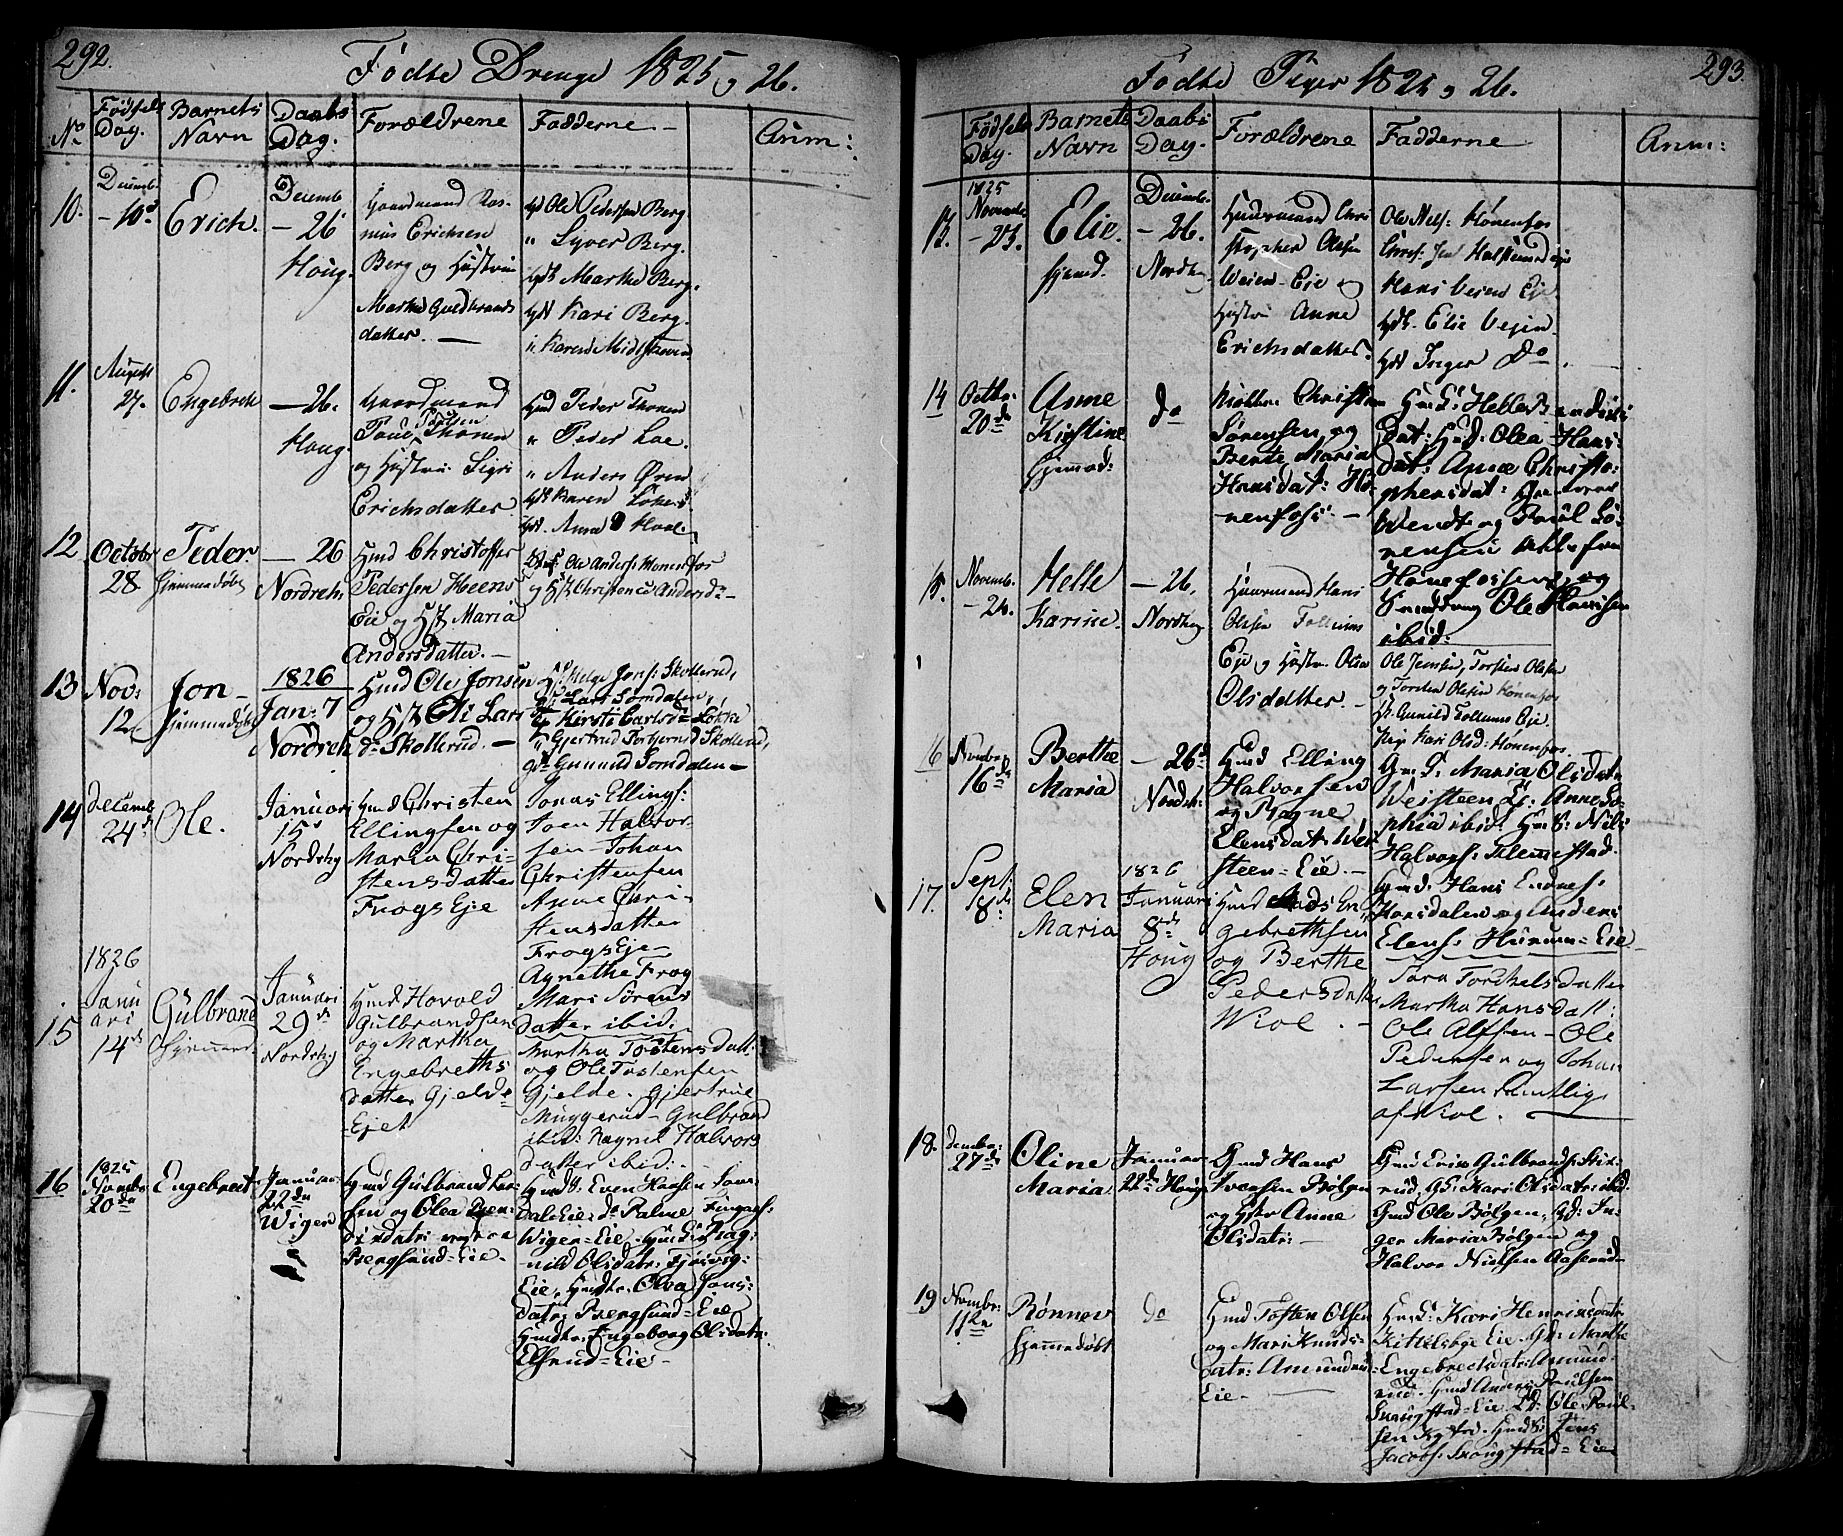 292.
Fødte Drenge 1825 og 26.
No
Fødsels Dag.
Barnets Navn
Daabs Dag.
Forældrene
Fadderne
Anm:
10.
Decemb.
- 10d
Erich.
Decemb
- 26
Houg.
Gaardmand Ras-
mus Erichsen
Berg og Hustrue
Marthe Guldbrands
datter.
Ole Pedersen Berg
" Syver Berg.
Marthe Berg.
Kari Berg.
" Karen Midtskoven
11.
August
27.
Engebreth
- 26.
Houg.
Gaardmand
Poul Poulsen Thonen
og Hustrue Sigri
Erichsdatter
Hmd Peder Thonen
" Peder Loe.
" Anders Øren
Karen
Anne
12
Octobr
28.
Peder.
Hjemmedøbt
- 26
Nordreh:
Hmd Christoffer
Pedersen Heens
Eie og Hst Maria
Andersdatter. -
Ole Anders: Hønenfos
og Hst Christence Andersd: -
13
Nov:
12
Jon -
Hjemmedøbt
1826
Jan: 7
Nordreh
Hmd Ole Jonsen
og Hst Oli Lars
d: Skollerud. -
Helge Jons: Skollerud,
Lars Somdalen,
Kirsti Carlsd: Løkke
Gjertrud Torbjørnsd Skollerud,
Gunild Somdalen -
14
Decemb
24d
Ole.
Januari
15
Nordrhg
Hmd Christen
Ellingsen og
Martha Chri-
stensdatter
Frogs Eje
Jonas Ellings:
Joen Halvor-
sen Johan
Christensen
Anne Chri-
stensdatter
Frogs Eje -
Agnethe Frog
Mari Sørens
datter ibid.
15
1826
Janu
ari
14d
Gulbrand
Hjemmed:
Januari
29d
Nordrhg
Hmd Hovold
Gulbrandsen
og Martha
Engebreths
datter Gjelde
-Ejet
Martha Tostensdatt:
og Ole Tostensen
Gjelde. Gjertrue
Muggerud - Gulbrand
ibid: Ragnil Halvors
datter ibid: -
16
1825
Novmbr
20de
Engebret
Januar
22de
Wigerd
Hmd Gulbrand Lar-
sen og Olea Been-
Bergsund-Eie -
Even Hansen
Wiger-Eie,
nild Olsdatr:
Eie, Olva Jons-
datr: Bergsund-Eie
Hmdtr. Engeborg Olsdatr:
Elsrud-Eie -
293.
Fødte Piger 1825 og 26.
Fødsels Dag.
Barnets Navn
Daabs Dag.
Forældrene
Fadderne
Anm:
13.
1825
Novemb
- 23.
Elie.
hjemmd.
Decemb.
- 26.
Nordrhg.
Huusmand Chri
stopher Olesen
Weien-Eie og
Hustru Anne
Erichsdatter.
Ole Nels: Hønenfos
Hans Veien Eje.
Elie Vejen.
Inger Do.
14
Octbr:
20de
Anne
Kirstine
hjemmd:
do
Christian
Sørensen og
Bente Maria
Hansdat: Hø-
nenfos: -
Helle Bendix
dat: Olea Hans-
dat: Anne Christo-
phersdat:
Wendt og Poul Sø-
rensen Alle fra
Hønefossen, og
Ole Hansen
ibid:
15.
Novemb.
- 24.
Helle
Karine.
- 26.
Nordrhg
Huusmand Hans
Olesen Follums
Eje og Hustru Olia
Olsdatter. -
Ole Jensen, Torsten Olesen
og Torsten Olesen Hønenfos
Gunild Follums Eje
Pige Kari Olsd: Hønenfos.
16
Novmbr
16de
Berthe
Maria
- 26d
Nordrh:
Hmd Elling
Halvorsen
og Ragne
Elensdat: Wei
steen-Eie. -
Maria Olsdatr
Weisteen Anne So-
phia ibid: Nils
Halvors: Klemmestad.
17.
Sept.
18de
Elen
Maria
1826
Januari
8de
Houg
Hmd Mads En-
gebrethsen
og Berthe
Pedersdatter
Wiol. -
Hmd: Hans Endres:
Hansdalen og Anders
Elens: Hurum-Eie
Tora Torkelsdatter
Martha Hansdatt:
Ole Alfsen - Ole
Pedersen og Johan
Larsen samtlig
af Wiol.
18.
Decmbr:
27de
Oline
Maria
Januar
22de Houg
Hmd Hans
Iversen Bølgen
og Hstr Anne
Olsdatr: -
Hmd Erik Gulbrands: Stix-
rud, Kari Olsdatr: ibid.
Hmd Ole Bølgen, In-
ger Maria Bølgen og
Halvor Nielsen Aaserud
19
Novmbr:
11te
Rønnev
hjemmedøbt
do
Hmd Tosten Olsen
og Mari Knuds-
datr: Amundrud
Eie -
Kari Henriksdatr:
Kittelsbye Eie. Marthe
Engebretsdatr: Amund-
rud. Hmd Anders Poulsen
Eie Ole Poul-
sen Jens
Jacobs: Eie